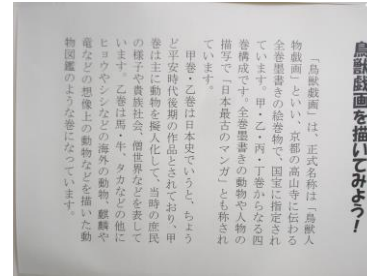 鳥獣戯画を描いてみよう!
「鳥獣戯画」は、正式名称は「鳥獣人
物戯画」といい、京都の高山寺に伝わる
全巻墨書きの絵巻物で、国宝に指定され
ています。甲・乙・丙・丁巻からなる四
巻構成です。全巻墨書きの動物や人物の
描写で「日本最古のマンガ」とも称され
ています。
甲巻・乙巻は日本史でいうと、ちょう
ど平安時代後期の作品とされており、甲
巻は主に動物を擬人化して、当時の庶民
の様子や貴族社会、僧世界などを表して
います。乙巻は馬・牛、タカなどの他に
ヒョウやシシなどの海外の動物、麒麟や
竜などの想像上の動物などを描いた動
物図鑑のような巻になっています。